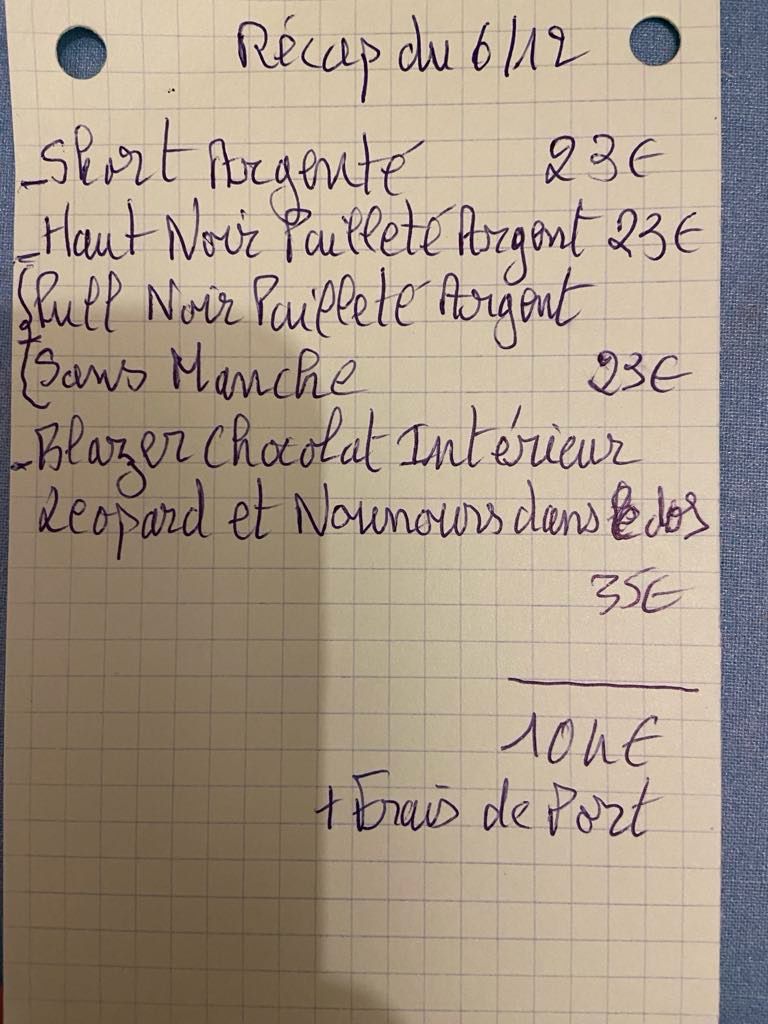 Récap du 6/12
- Short Argenté 23€
- Haut Noir Pailleté Argent 23€
Pull Noir Pailleté Argent
Sans Manche 23€
- Blazer Chocolat Intérieur
Leopard et Nounours dans le dos
35€
104€
+ Frais de Port